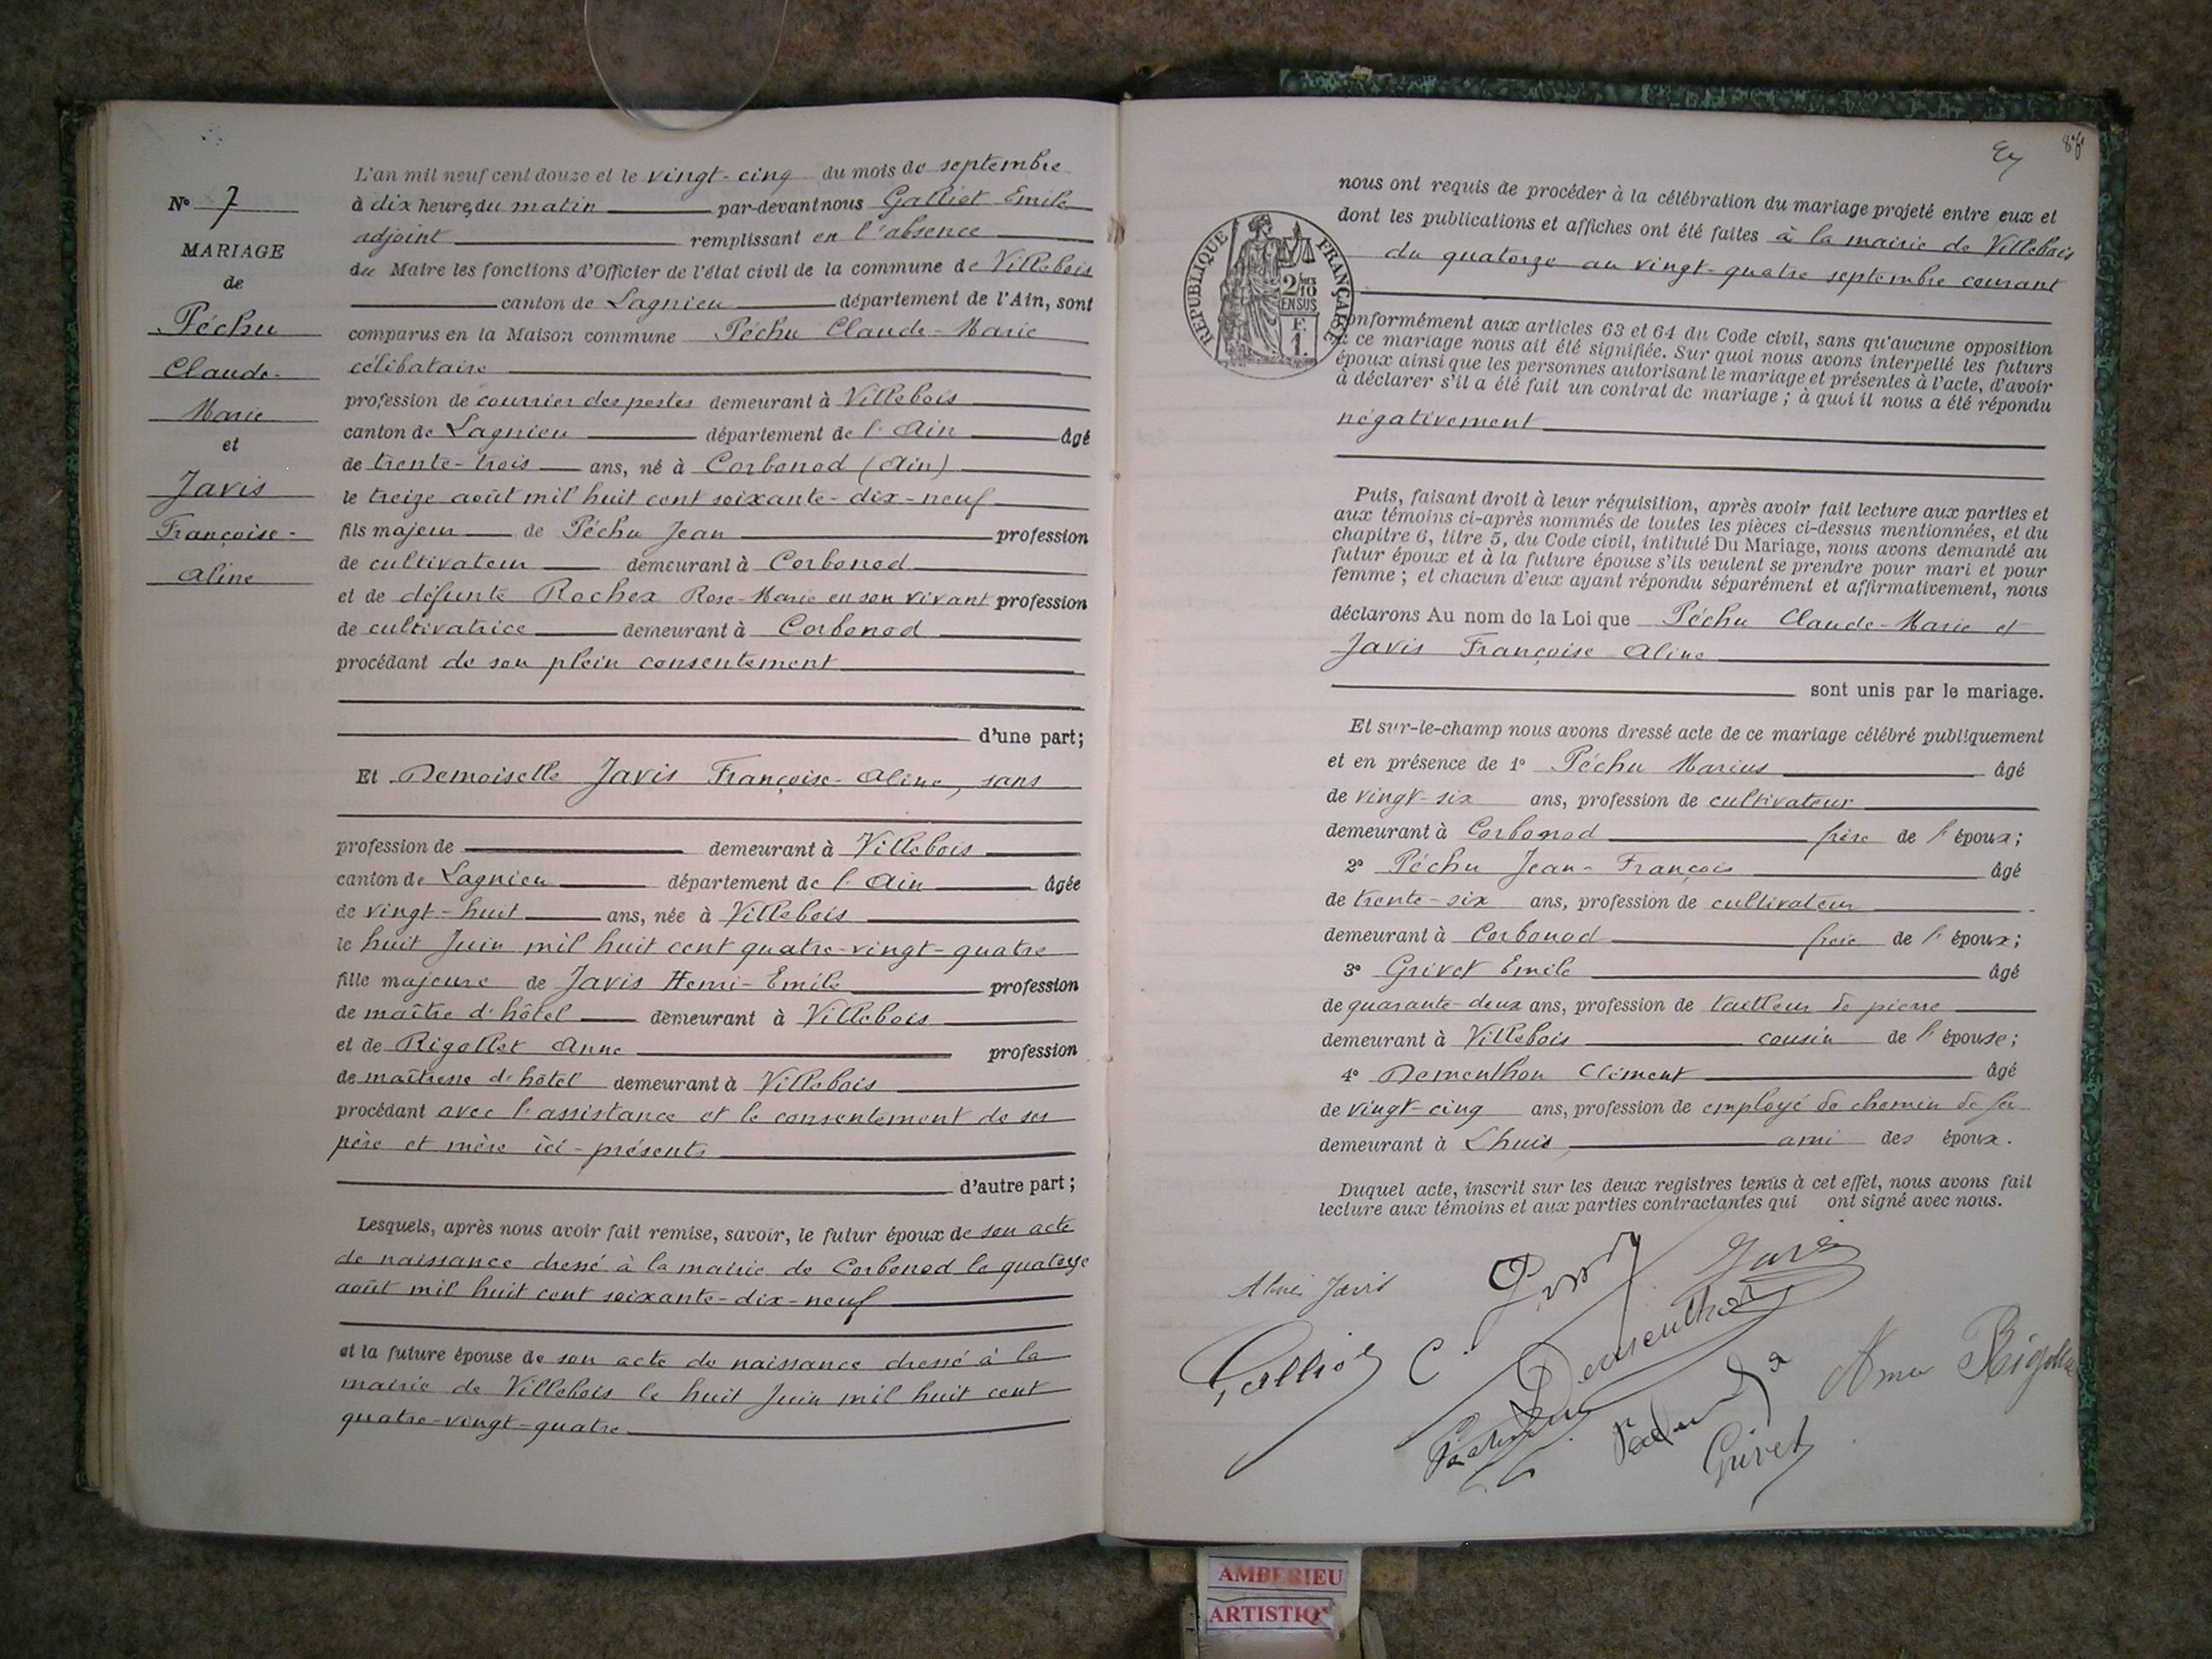 N° 7
MARIAGE
de
Péchu
Claude-
Marie
et
Javis
Françoise-
Aline
L'an mil neuf cent douze et le vingt-cinq du mois de septembre
à dix heures du matin par-devant nous Galliot Emile
adjoint remplissant en l'absence
du Maire les fonctions d'Officier de l'état civil de la commune de Villebois
canton de Lagnieu département de l'Ain, sont
comparus en la Maison commune Péchu Claude-Marie
célibataire
profession de courrier des postes demeurant à Villebois
canton de Lagnieu département de l'Ain âgé
de trente-trois ans, né à Corbonod (Ain)
le treize août mil huit cent soixante-dix-neuf
fils majeur de Péchu Jean profession
de cultivateur demeurant à Corbonod
et de défunte Rochex Rose-Marie en son vivant profession
de cultivatrice demeurant à Corbonod
procédant de son plein consentement
d'une part;
Et Demoiselle Javis Françoise-Aline, sans
profession de demeurant à Villebois
canton de Lagnieu département de l'Ain âgée
de vingt-huit ans, née à Villebois
le huit Juin mil huit cent quatre-vingt-quatre
fille majeure de Javis Henri-Emile profession
de maître d'hôtel demeurant à Villebois
et de Rigollet Anne profession
de maîtresse d'hôtel demeurant à Villebois
procédant avec l'assistance et le consentement de ses
père et mère ici-présents
d'autre part;
Lesquels, après nous avoir fait remise, savoir, le futur époux de son acte
de naissance dressé à la mairie de Corbonod le quatorze
août mil huit cent soixante-dix-neuf
et la future épouse de son acte de naissance dressé à la
mairie de Villebois le huit Juin mil huit cent
quatre-vingt-quatre
nous ont requis de procéder à la célébration du mariage projeté entre eux et
dont les publications et affiches ont été faites à la mairie de Villebois
du quatorze au vingt-quatre septembre courant
RÉPUBLIQUE FRANÇAISE
2/10
EN SUS
F.
1.
conformément aux articles 63 et 64 du Code civil, sans qu'aucune opposition
à ce mariage nous ait été signifiée. Sur quoi nous avons interpellé les futurs
époux ainsi que les personnes autorisant le mariage et présentes à l'acte, d'avoir
à déclarer s'il a été fait un contrat de mariage; à quoi il nous a été répondu
négativement
Puis, faisant droit à leur réquisition, après avoir fait lecture aux parties et
aux témoins ci-après nommés de toutes les pièces ci-dessus mentionnées, et du
chapitre 6, titre 5, du Code civil, intitulé Du Mariage, nous avons demandé au
futur époux et à la future épouse s'ils veulent se prendre pour mari et pour
femme; et chacun d'eux ayant répondu séparément et affirmativement, nous
déclarons Au nom de la Loi que Péchu Claude-Marie et
Javis Françoise-Aline
sont unis par le mariage.
Et sur-le-champ nous avons dressé acte de ce mariage célébré publiquement
et en présence de 1° Péchu Marius âgé
de vingt-six ans, profession de cultivateur
demeurant à Corbonod frère de l'époux;
2° Péchu Jean-François âgé
de trente-six ans, profession de cultivateur
demeurant à Corbonod frère de l'époux;
3° Grivet Emile âgé
de quarante-deux ans, profession de tailleur de pierre
demeurant à Villebois cousin de l'épouse;
4° Dementhon Clément âgé
de vingt-cinq ans, profession de employé de chemin de fer
demeurant à Lhuis, ami des époux.
Duquel acte, inscrit sur les deux registres tenus à cet effet, nous avons fait
lecture aux témoins et aux parties contractantes qui ont signé avec nous.
Aline Javis
Javis
Galliot
C. Dementhon
Anna Rigollet
Grivet
AMBERIEU
ARTISTIQ